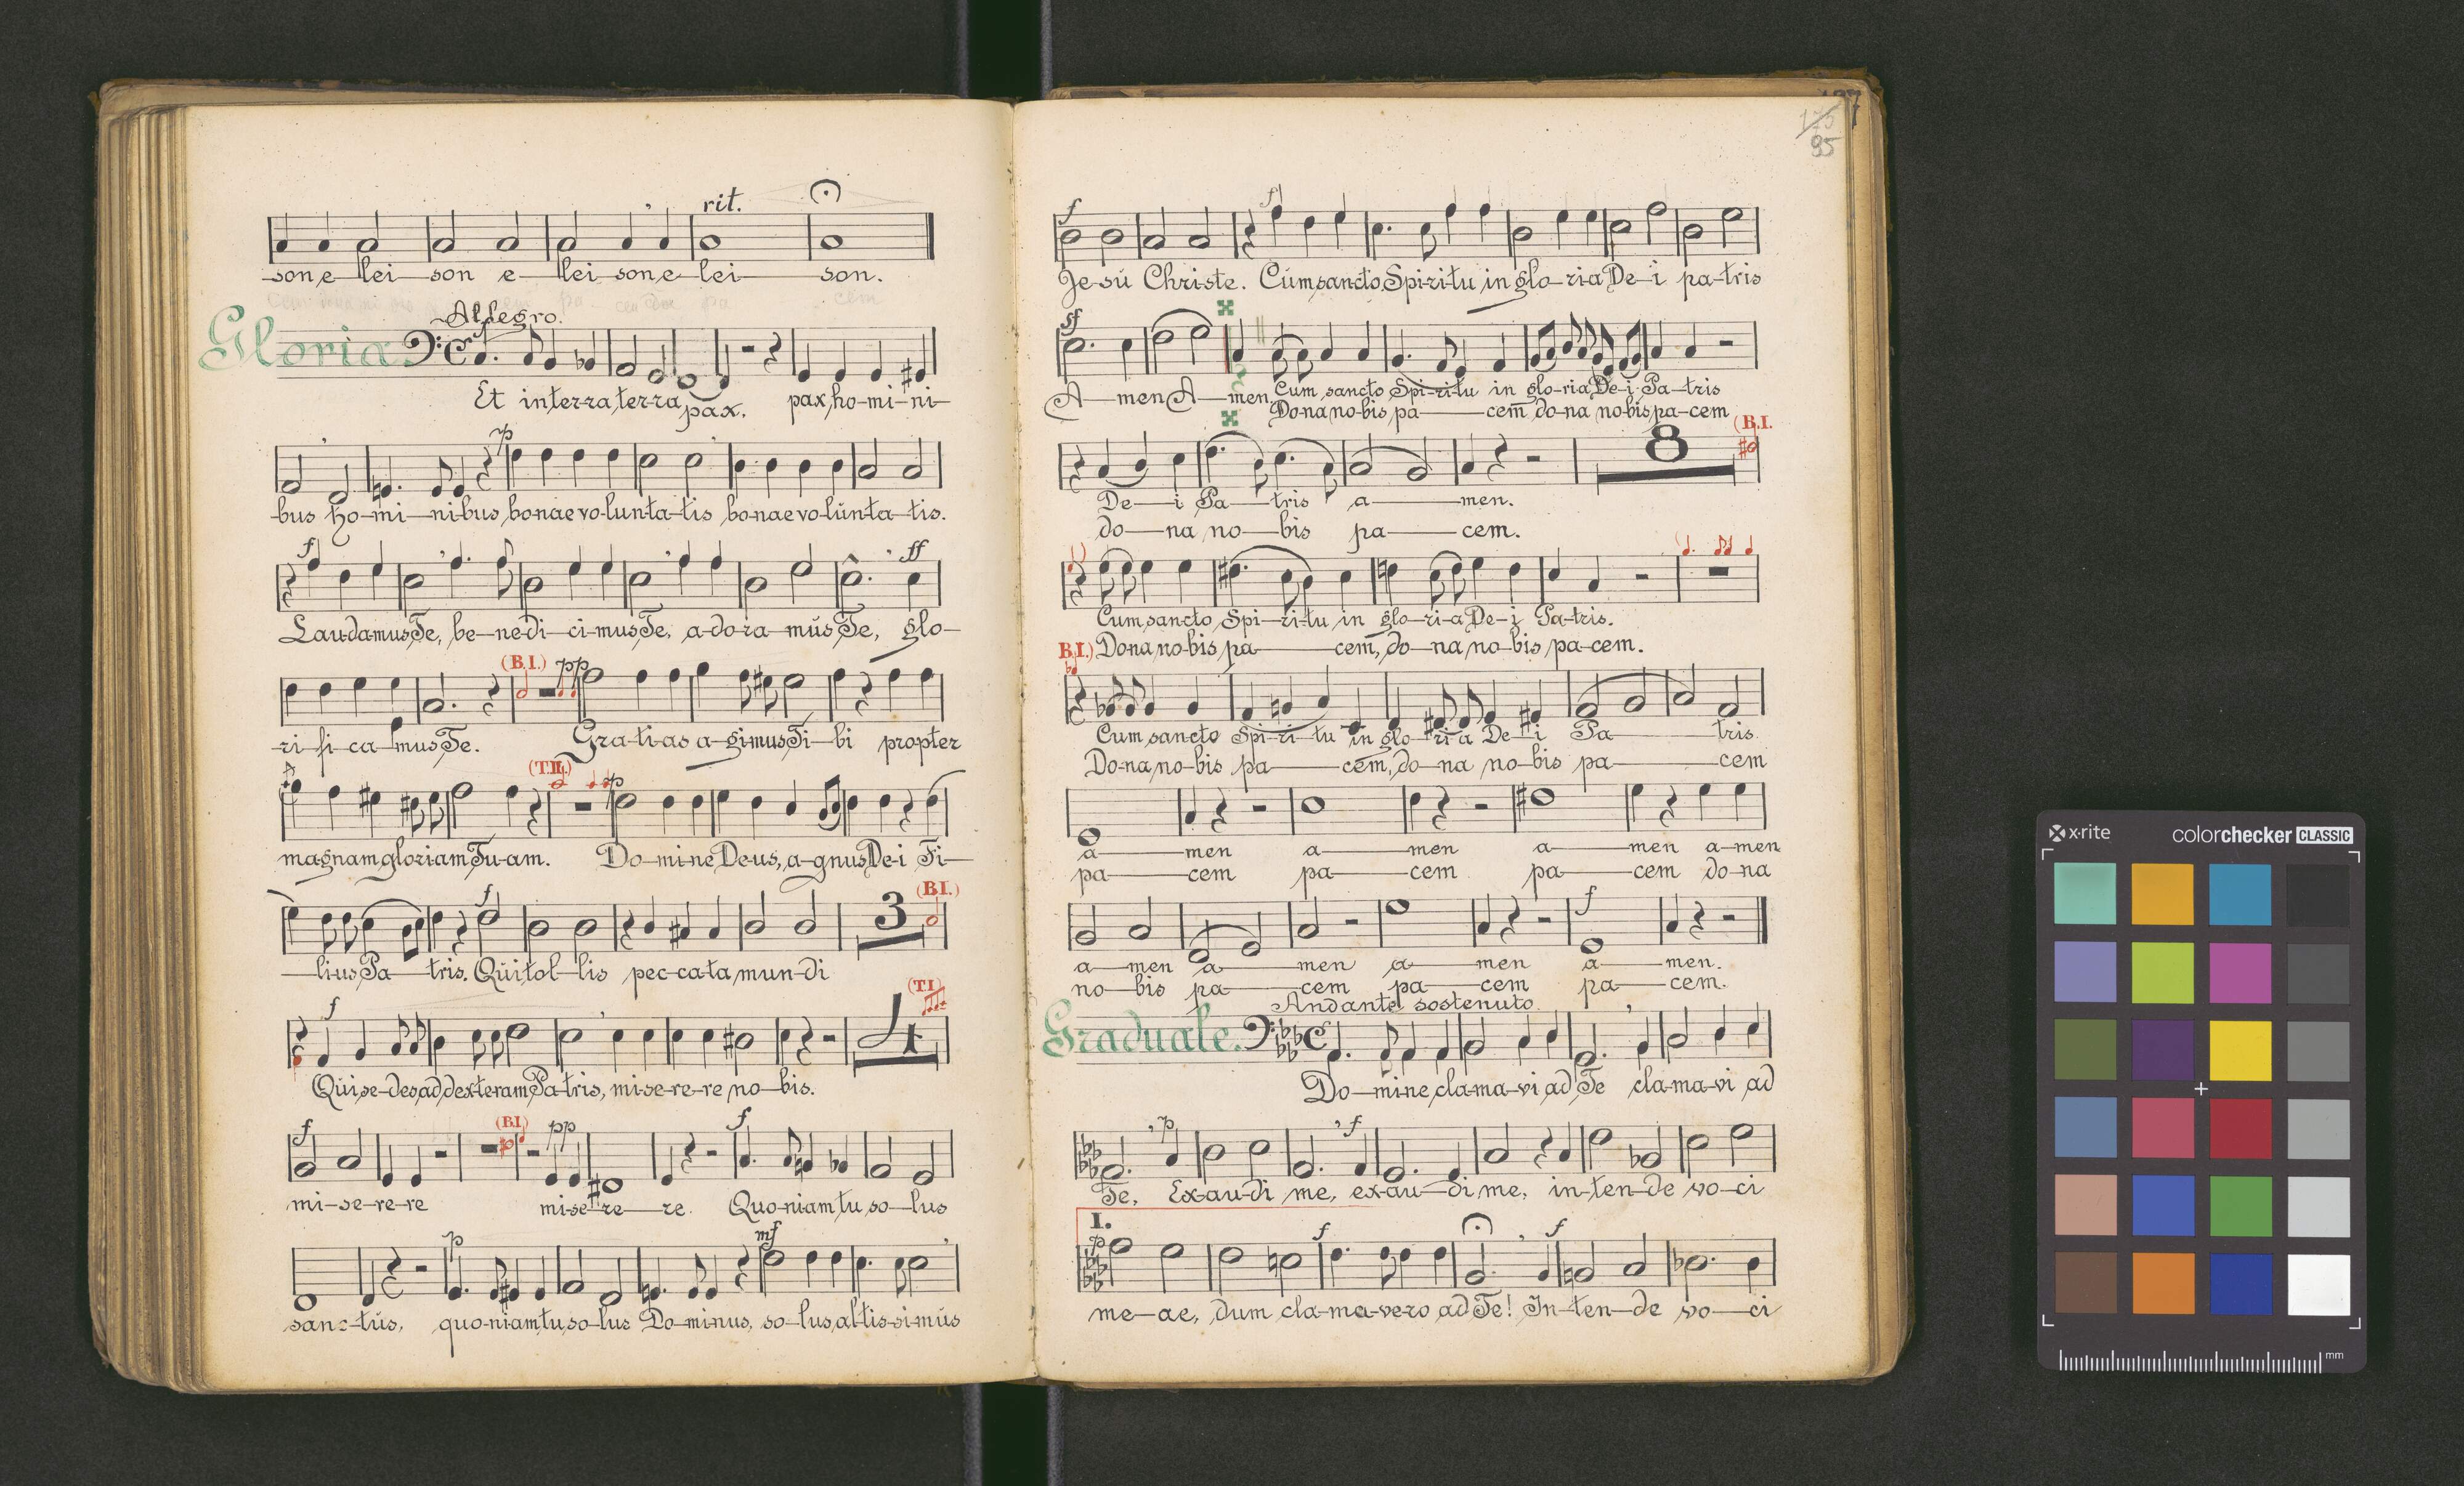 rit.
son e lei son e lei son e lei son.
Allegro.
Gloria.
Et in terra, terra, pax. pax, ho-mi-ni-
p
bus ho-mi-ni-bus, bonae vo-lun-ta-tis bo-nae vo-lün-ta-tis.
f ff
Lau-da-mus Te, be-ne-di-ci-mus Te, a-do-ra-müs Te, glo-
(B.I.) pp
ri-fi-ca-mus Te. Gra-ti-as a-gi-mus Ti-bi propter
(T.II.) p
magnam gloriam Tu-am. Do-mi-ne De-us, a-gnus De-i Fi-
f 3 (B.I.)
li-us Pa-tris. Qüi tol-lis pec-ca-ta mun-di
f 4 (T.I.)
Qüi se-des ad dex-te-ram Pa-tris, mi-se-re-re no-bis.
f (B.I.) pp f
mi-se-re-re mi-se-re-re. Quo-niam tu so-lus
p mf
sanc-tüs, quo-niam tu, so-lus Do-mi-nus, so-lus, al-tis-si-müs
175
95
f f
Je-sü Christe. Cüm sancto Spi-ri-tu in glo-ri-a De-i pa-tris
ff
A-men A-men. Cum sancto Spi-ri-tu in glo-ria De-i Pa-tris
Do-na no-bis pa-cem do-na no-bis pa-cem
8 (B.I.
De-i Pa-tris a-men.
do-na no-bis pa-cem.
Cum sancto Spi-ri-tu in glo-ri-a De-i Pa-tris.
B.I.) Do-na no-bis pa-cem, do-na no-bis pa-cem.
Cum sancto Spi-ri-tu in glo-ri-a De-i Pa-tris
Do-na no-bis pa-cem, do-na no-bis pa-cem
a-men a-men a-men a-men
pa-cem pa-cem pa-cem do-na
f
a-men a-men a-men a-men.
no-bis pa-cem pa-cem pa-cem.
Andante sostenuto
Graduale.
Do-mi-ne, cla-ma-vi ad Te cla-ma-vi ad
p f
Te, Ex-au-di me, ex-au-di me, in-ten-de vo-ci
I.
p f f
me-ae, dum cla-ma-vero ad Te! In-ten-de vo-ci
x-rite colorchecker CLASSIC
mm